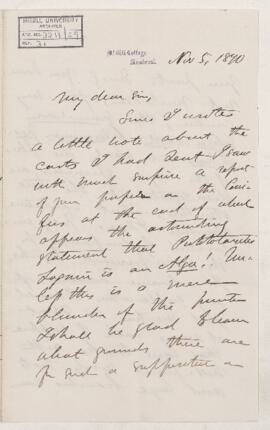 McGILL UNIVERSITY
ARCHIVES
ACC. NO.
REF.
McGill College
Montreal
Nov 5, 1890
My dear Sir,
Since I wrote
a little note about the
casts I had sent I saw
with much surprise a report
of your paper on the Coni-
fers at the end of which
appears the astounding
statement that Prototaxites
Logani is an Alga! Un-
less this is a mere
blunder of the printer
I shall be glad to learn
what grounds there are
for such a supposition